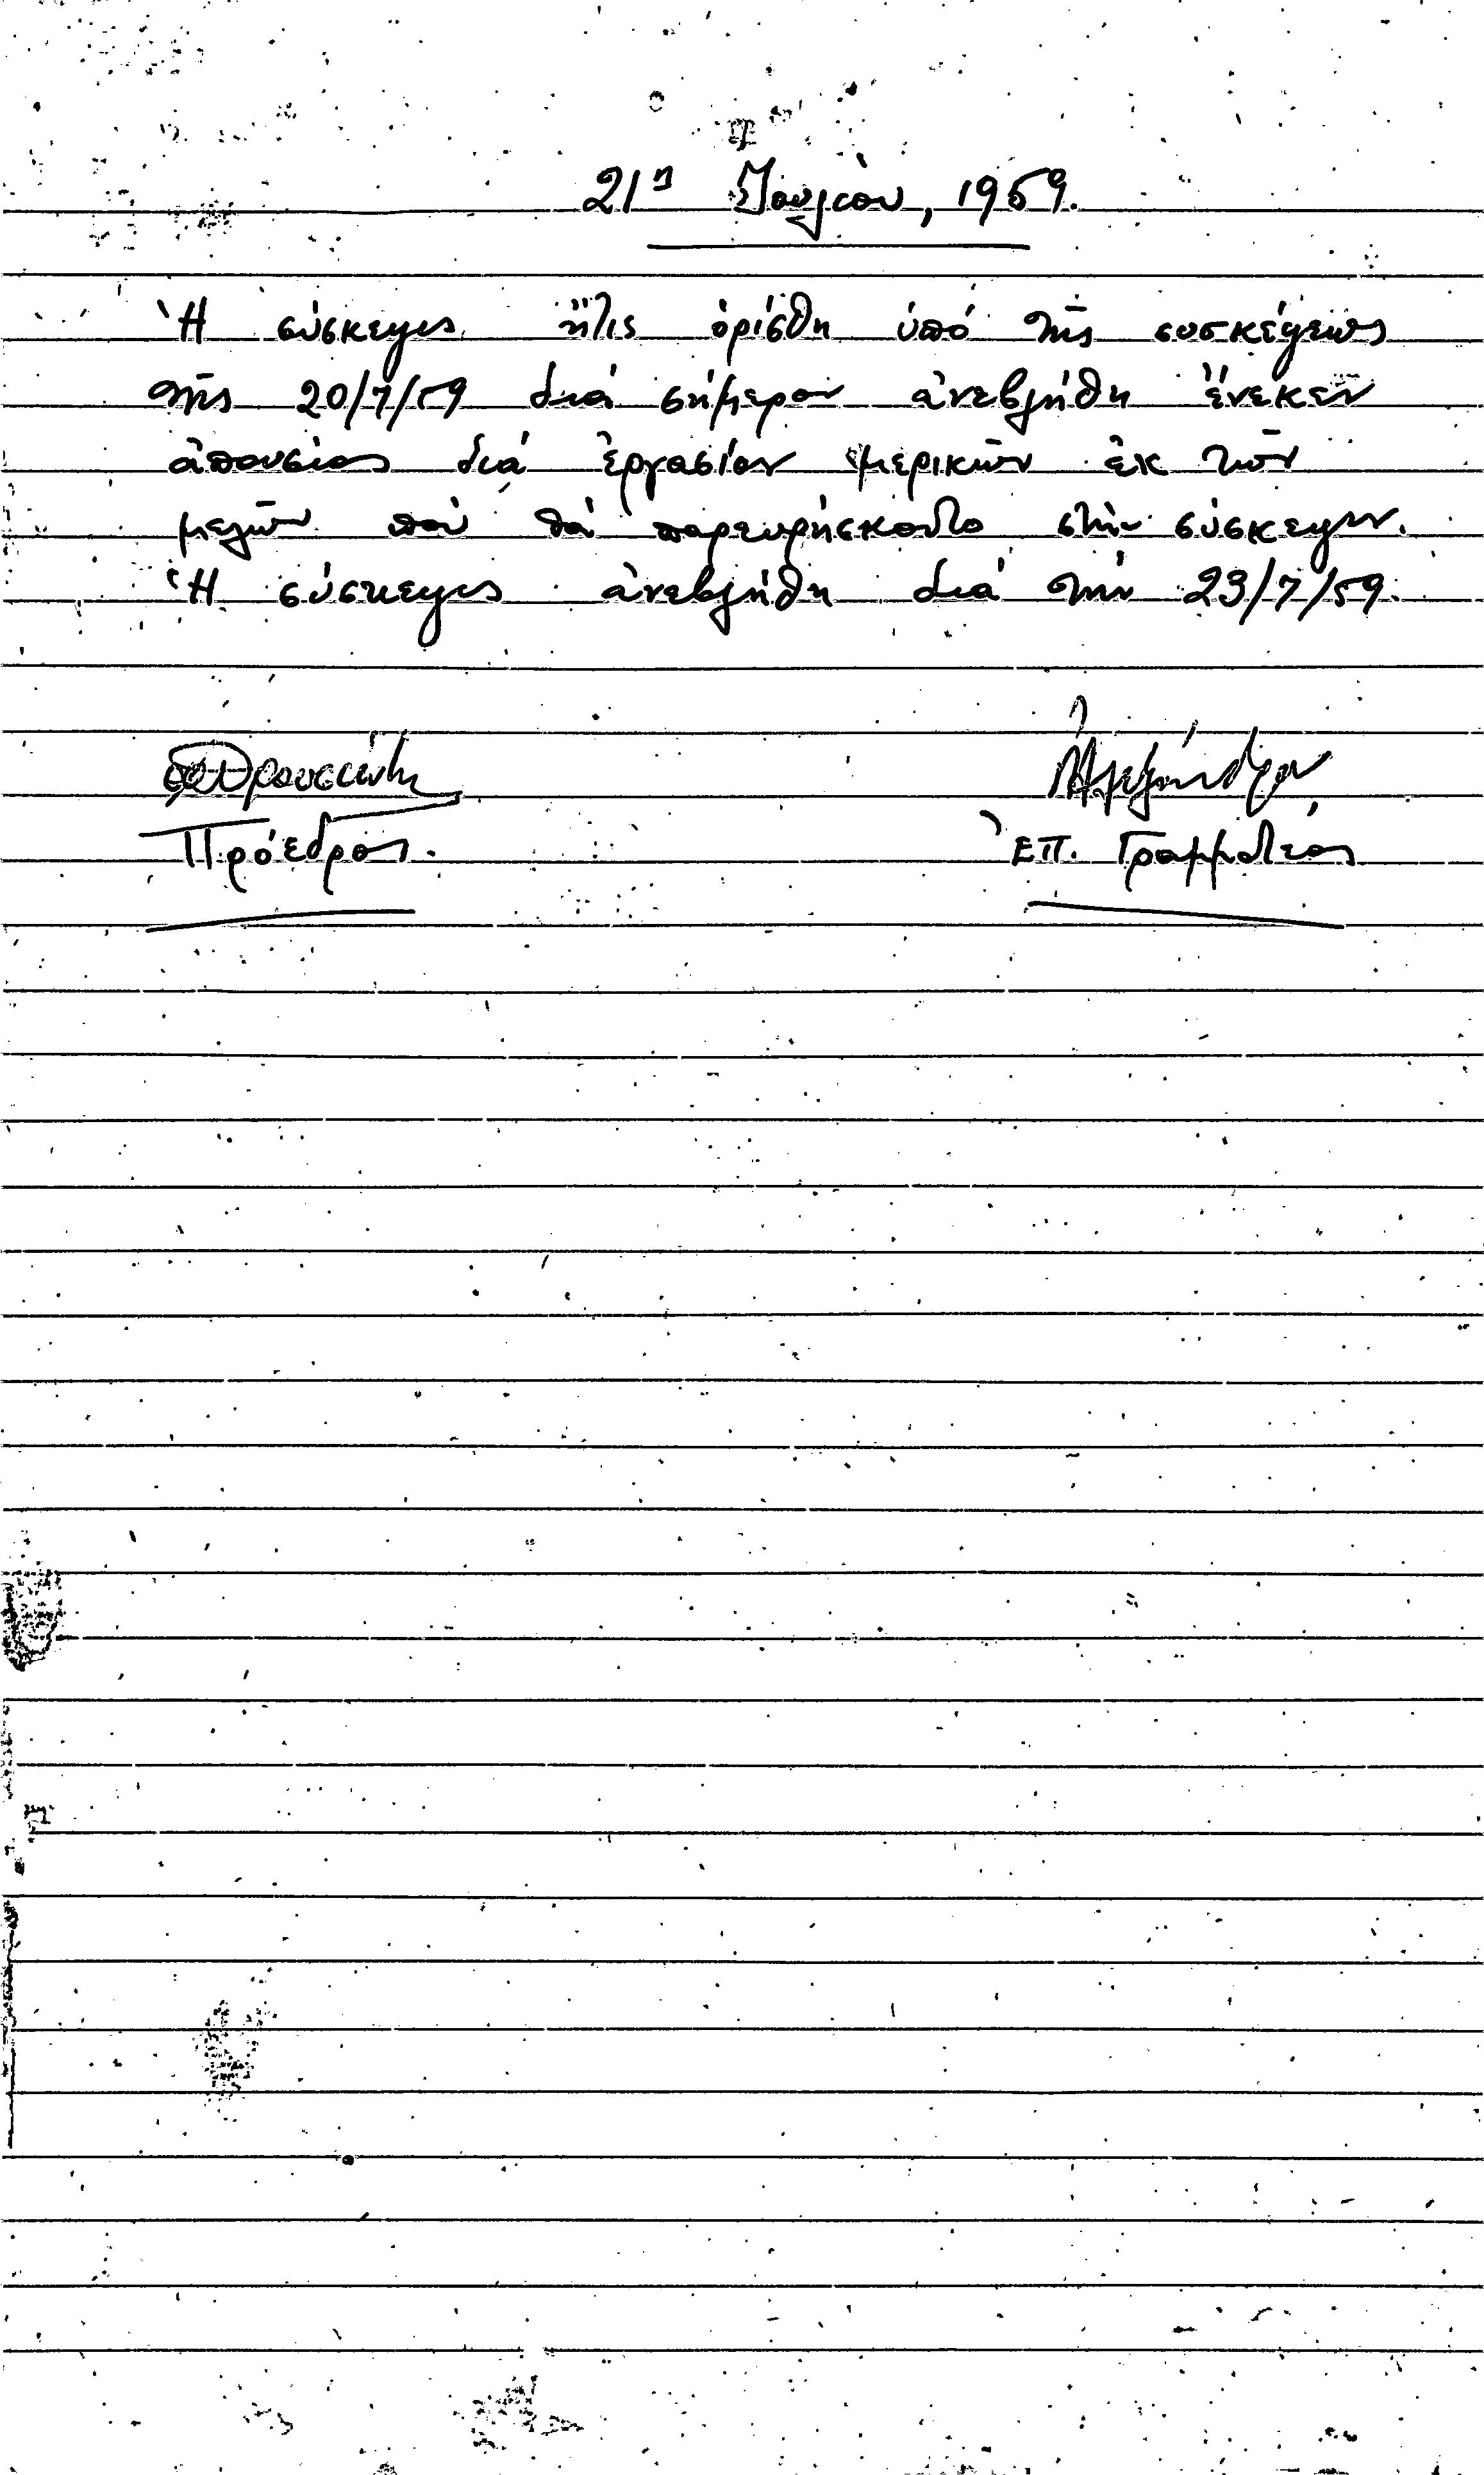 21η Ἰουλίου, 1959.
Ἡ σύσκεψις ἥτις ὁρίσθη ὑπό τῆς συσκέψεως
τῆς 20/7/59 διά σήμερον ἀνεβλήθη ἕνεκεν
ἀπουσίας διά ἐργασίαν μερικῶν ἐκ τῶν
μελῶν πού θά παρευρήσκοντο στήν σύσκεψιν.
Ἡ σύσκεψις ἀνεβλήθη διά τήν 23/7/59.
Πρόεδρος.
Ἐπ. Γραμματέας